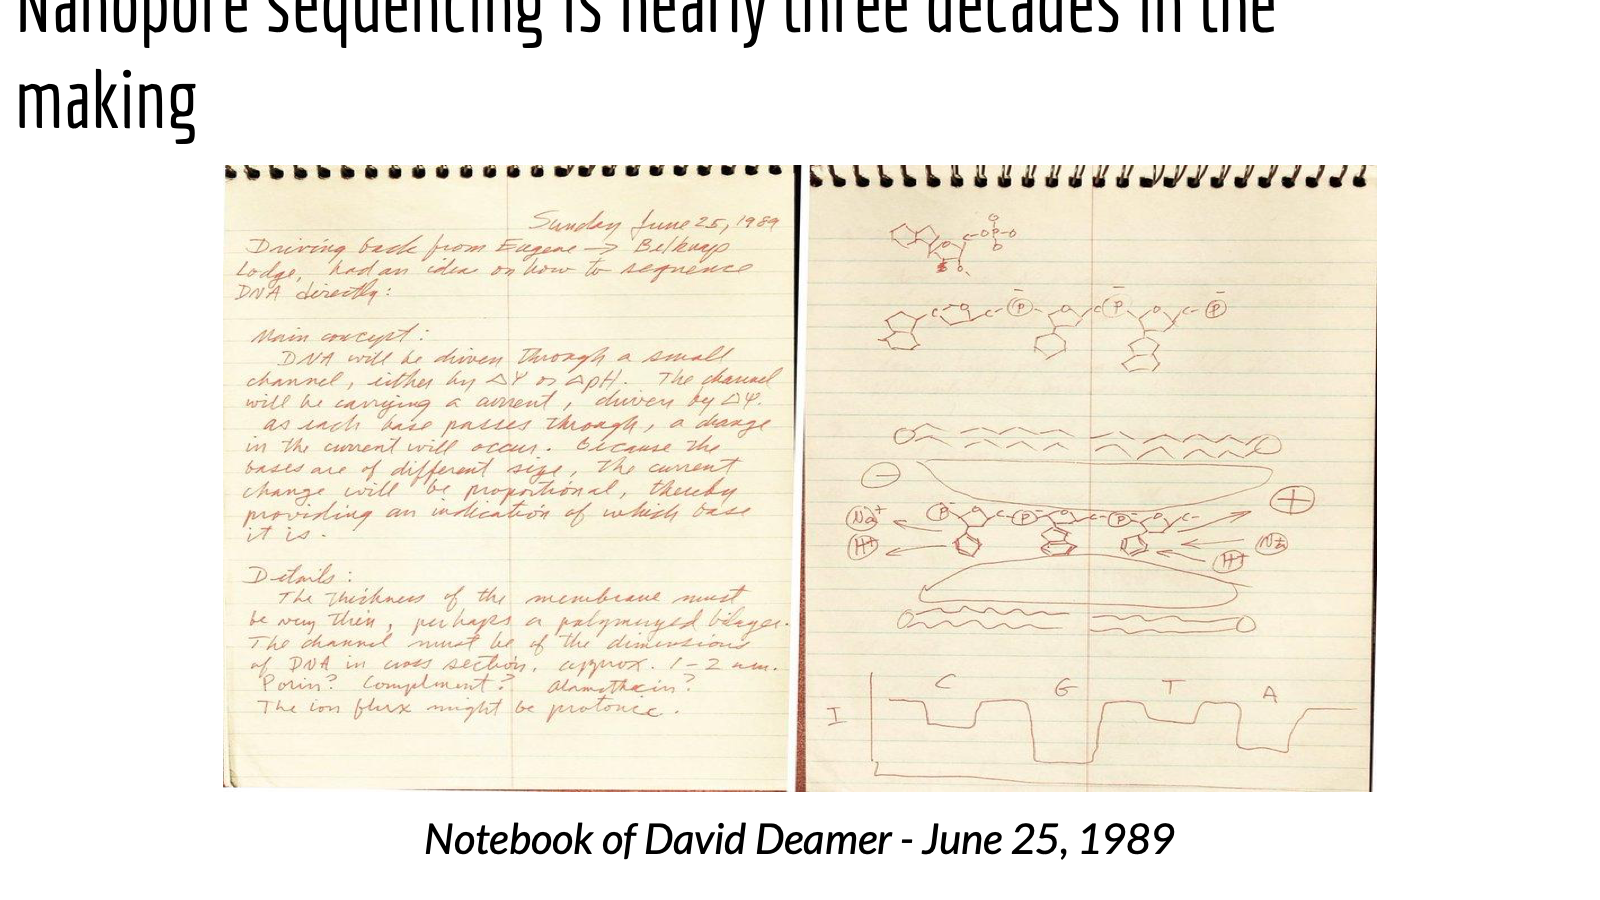 Nanopore sequencing is nearly three decades in the
making
Sunday June 25, 1989
Driving back from Eugene → Belknap
Lodge, had an idea on how to sequence
DNA directly:
Main concept:
DNA will be driven through a small
channel, either by ΔΨ or ΔpH. The channel
will be carrying a current, driven by ΔΨ.
as each base passes through, a change
in the current will occur. Because the
bases are of different size, the current
change will be proportional, thereby
providing an indication of which base
it is.
Details:
The thickness of the membrane must
be very thin, perhaps a polymerized bilayer.
The channel must be of the dimensions
of DNA in cross section, approx. 1-2 nm.
Porin? Compliment? Alamethicin?
The ion flux might be protonic.
O
C-O-P-O
O
O O
C O C P O C P O C P
−
+
P O C P O C P O C
Na+
H+
Na+
H+
C G T A
I
Notebook of David Deamer - June 25, 1989